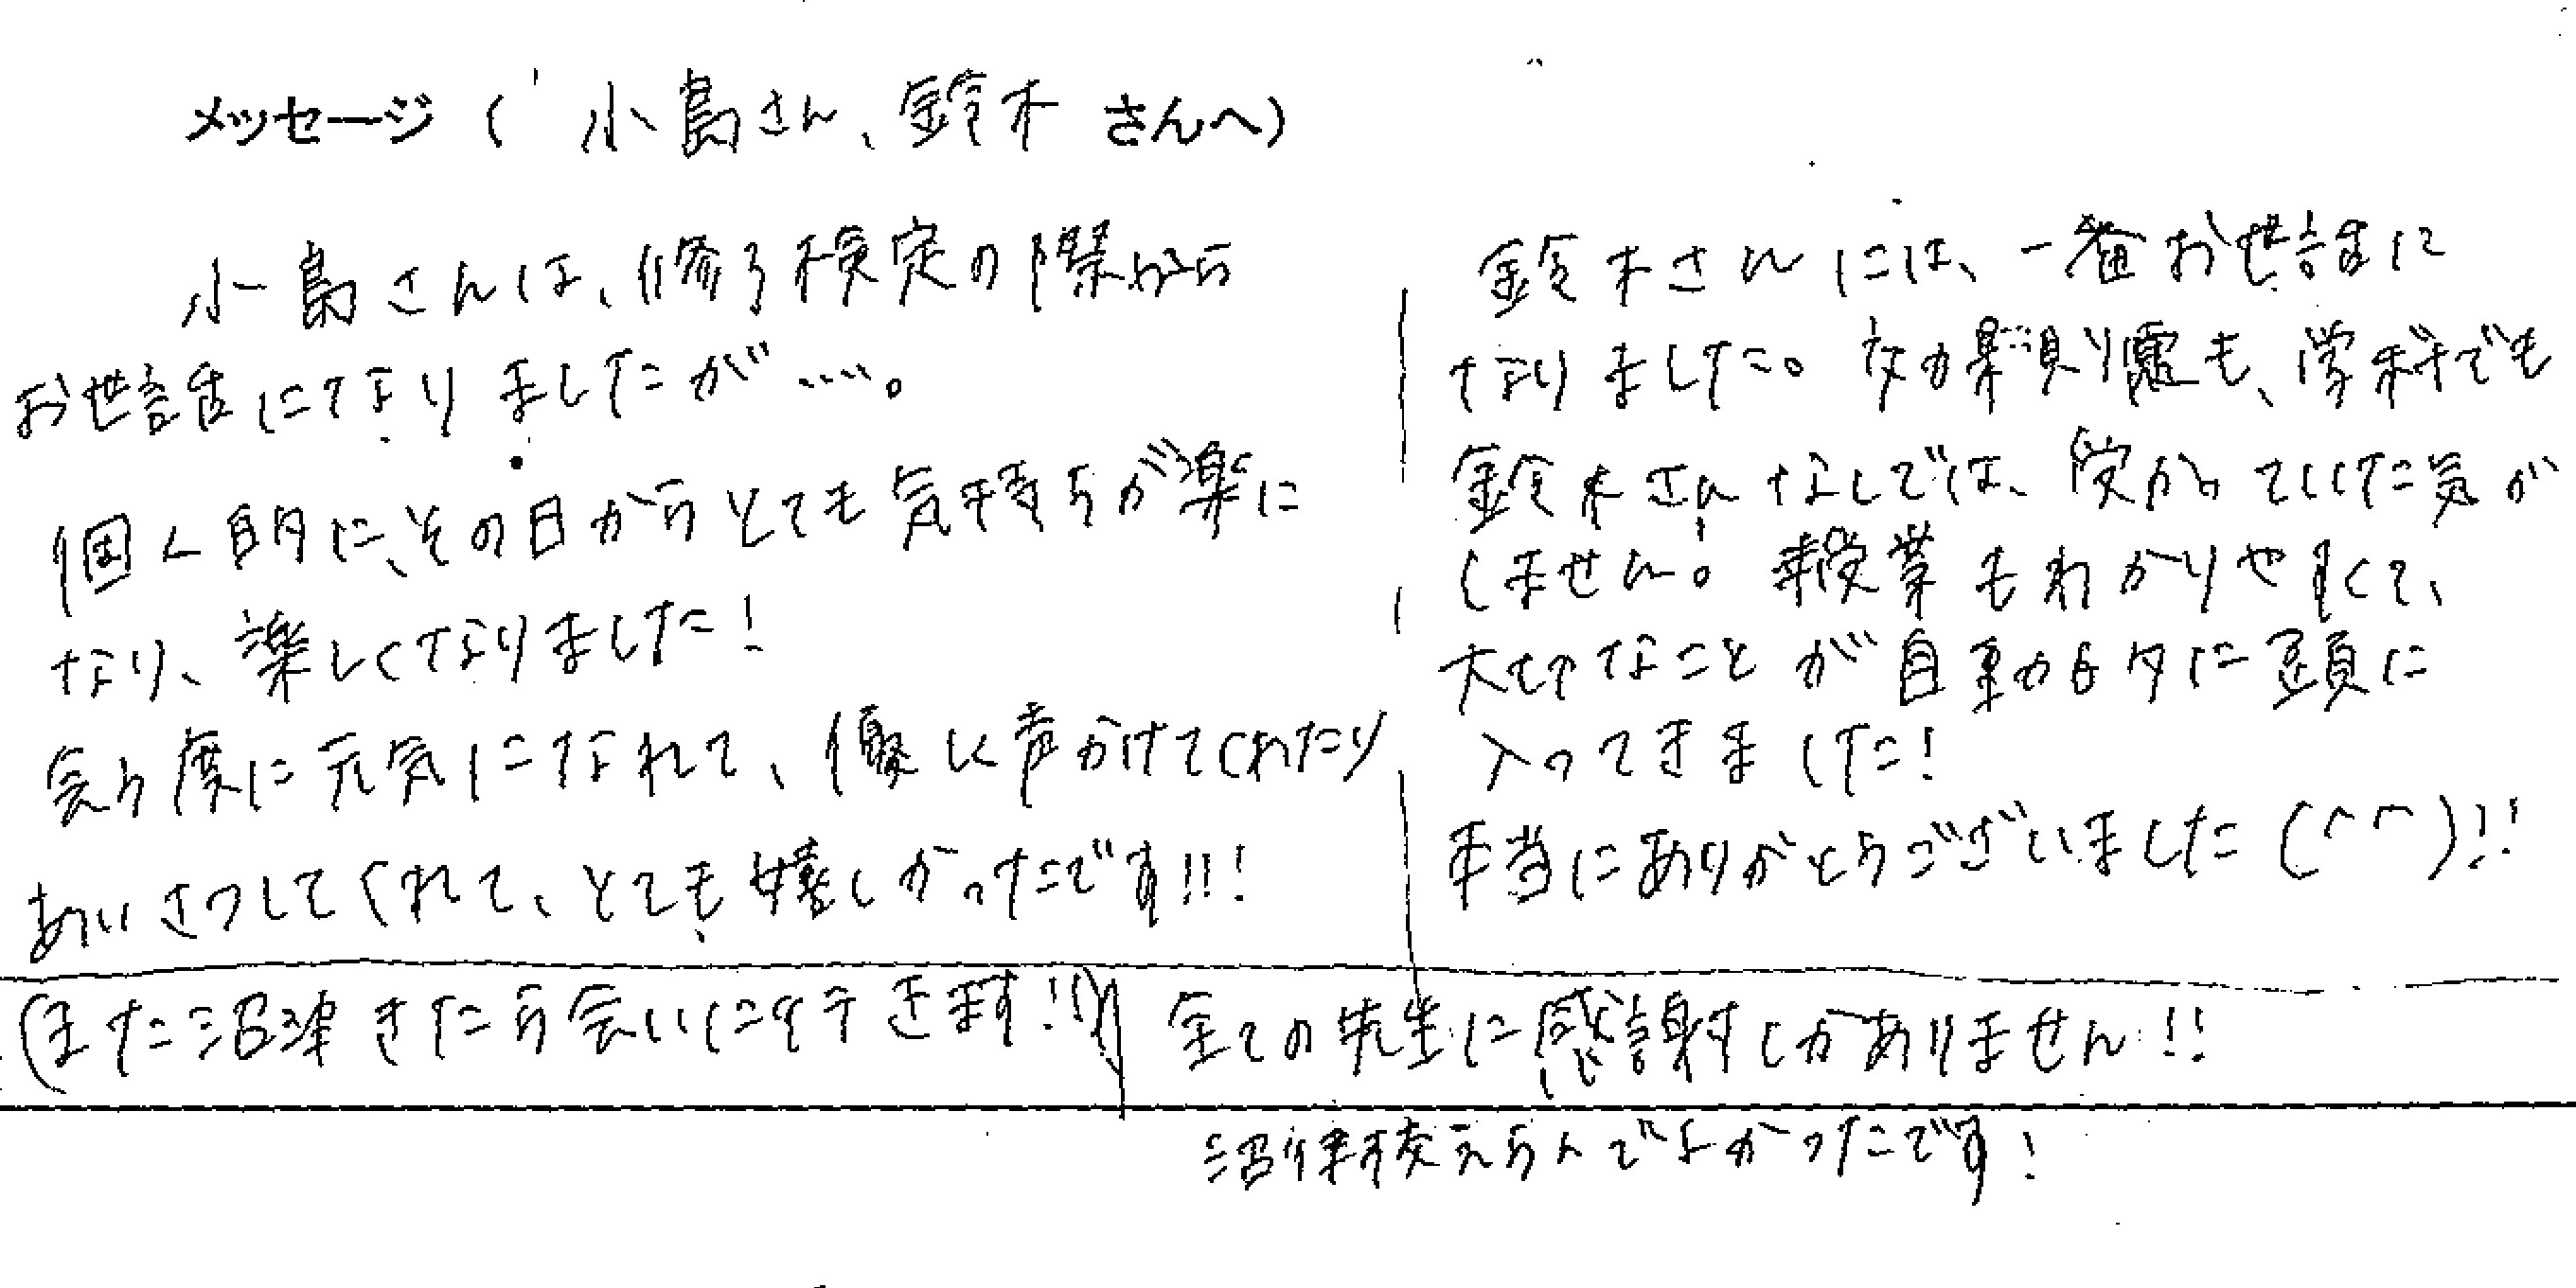 メッセージ ( 小島さん、鈴木 さんへ)
小島さんは、修了検定の際から
お世話になりましたが…。
個人的に、その日からとても気持ちが楽に
なり、楽しくなりました!
会う度に元気になれて、優しく声かけてくれたり
あいさつしてくれて、とても嬉しかったです!!!
(また沼津きたら会いに行きます!!)
鈴木さんには、一番お世話に
なりました。効果測定も、学科でも
鈴木さんなしでは、受かっていた気が
しません。授業もわかりやすくて、
大切なことが自動的に頭に
入ってきました!
本当にありがとうございました(^^)!!
全ての先生に感謝しかありません!!
沼津校えらんでよかったです!